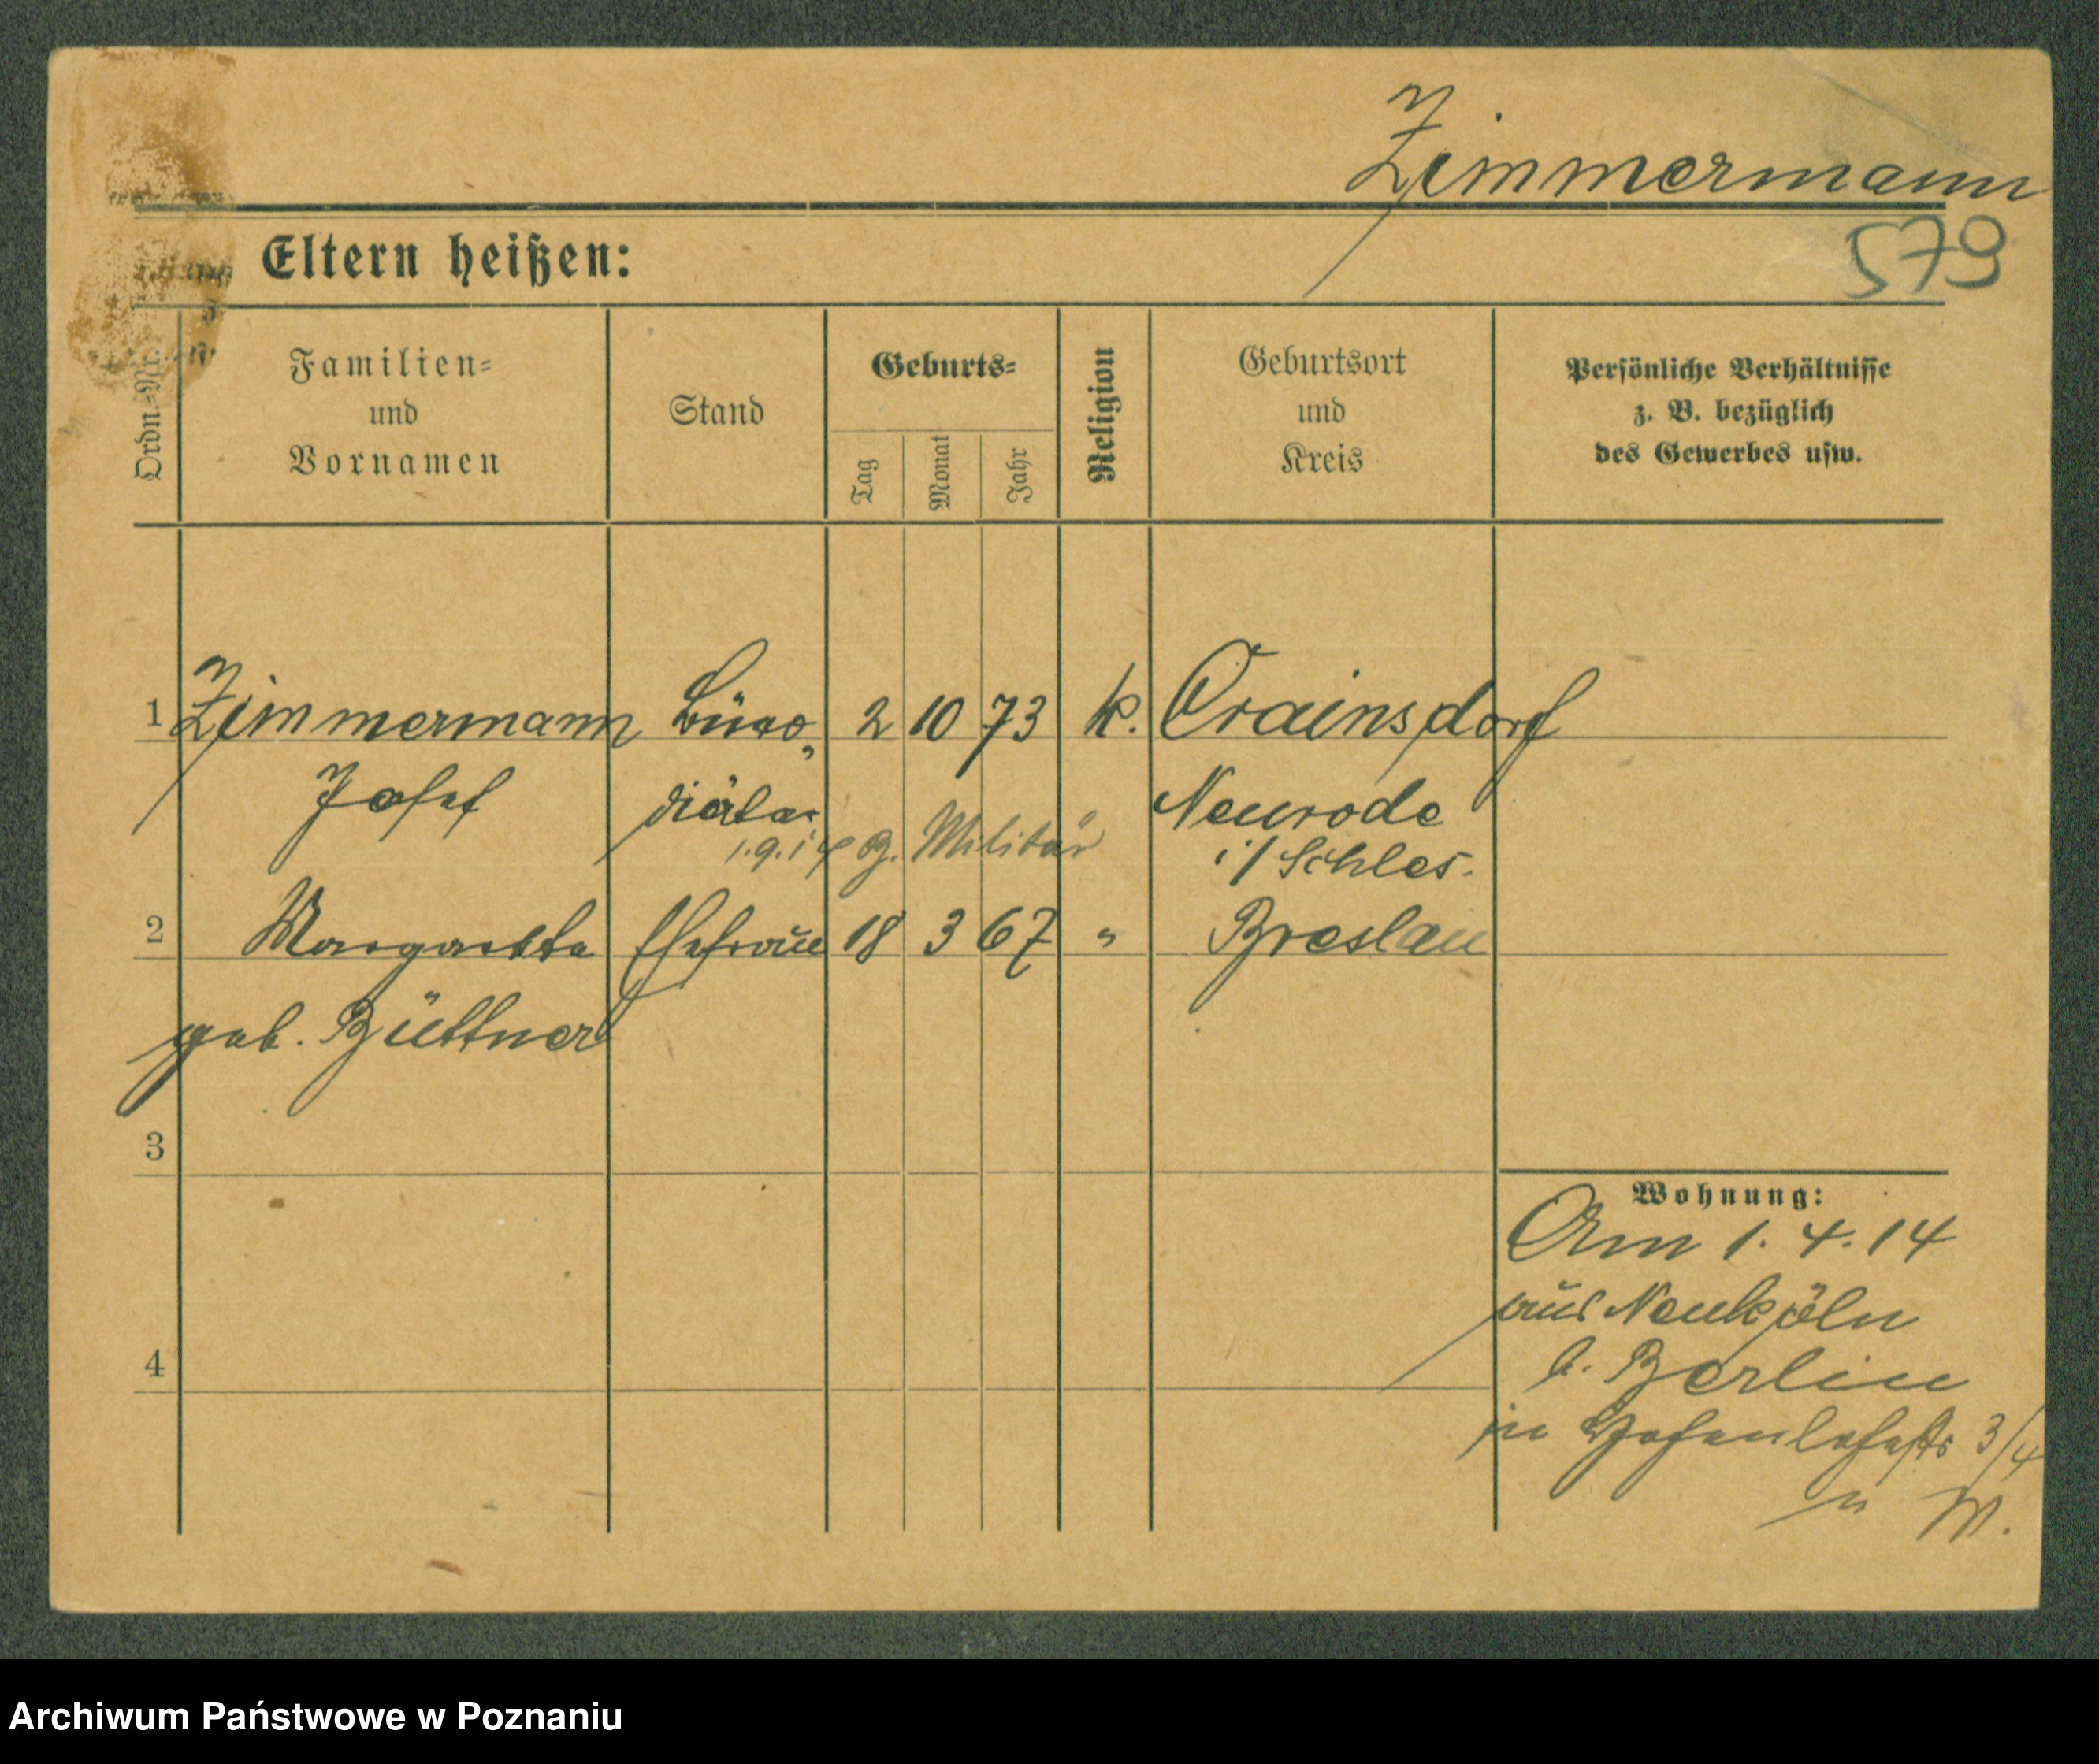 Zimmermann
579
Eltern heißen:
Ordn.-Nr.
Familien-
und
Vornamen
Stand
Geburts-
Tag
Monat
Jahr
Religion
Geburtsort
und
Kreis
Persönliche Verhältnisse
z. B. bezüglich
des Gewerbes usw.
1 Zimmermann Büro- 2 10 73 k.
Josef diätar Neurode
1.9.14 z. Militär i/Schles.
2 Margarethe Ehefrau 18 3 67 " Breslau
geb. Büttner
3
Wohnung:
Am 1. 4. 14
aus Neukölln
b. Berlin
4
in Hohenlohestr 3/4
Archiwum Państwowe w Poznaniu